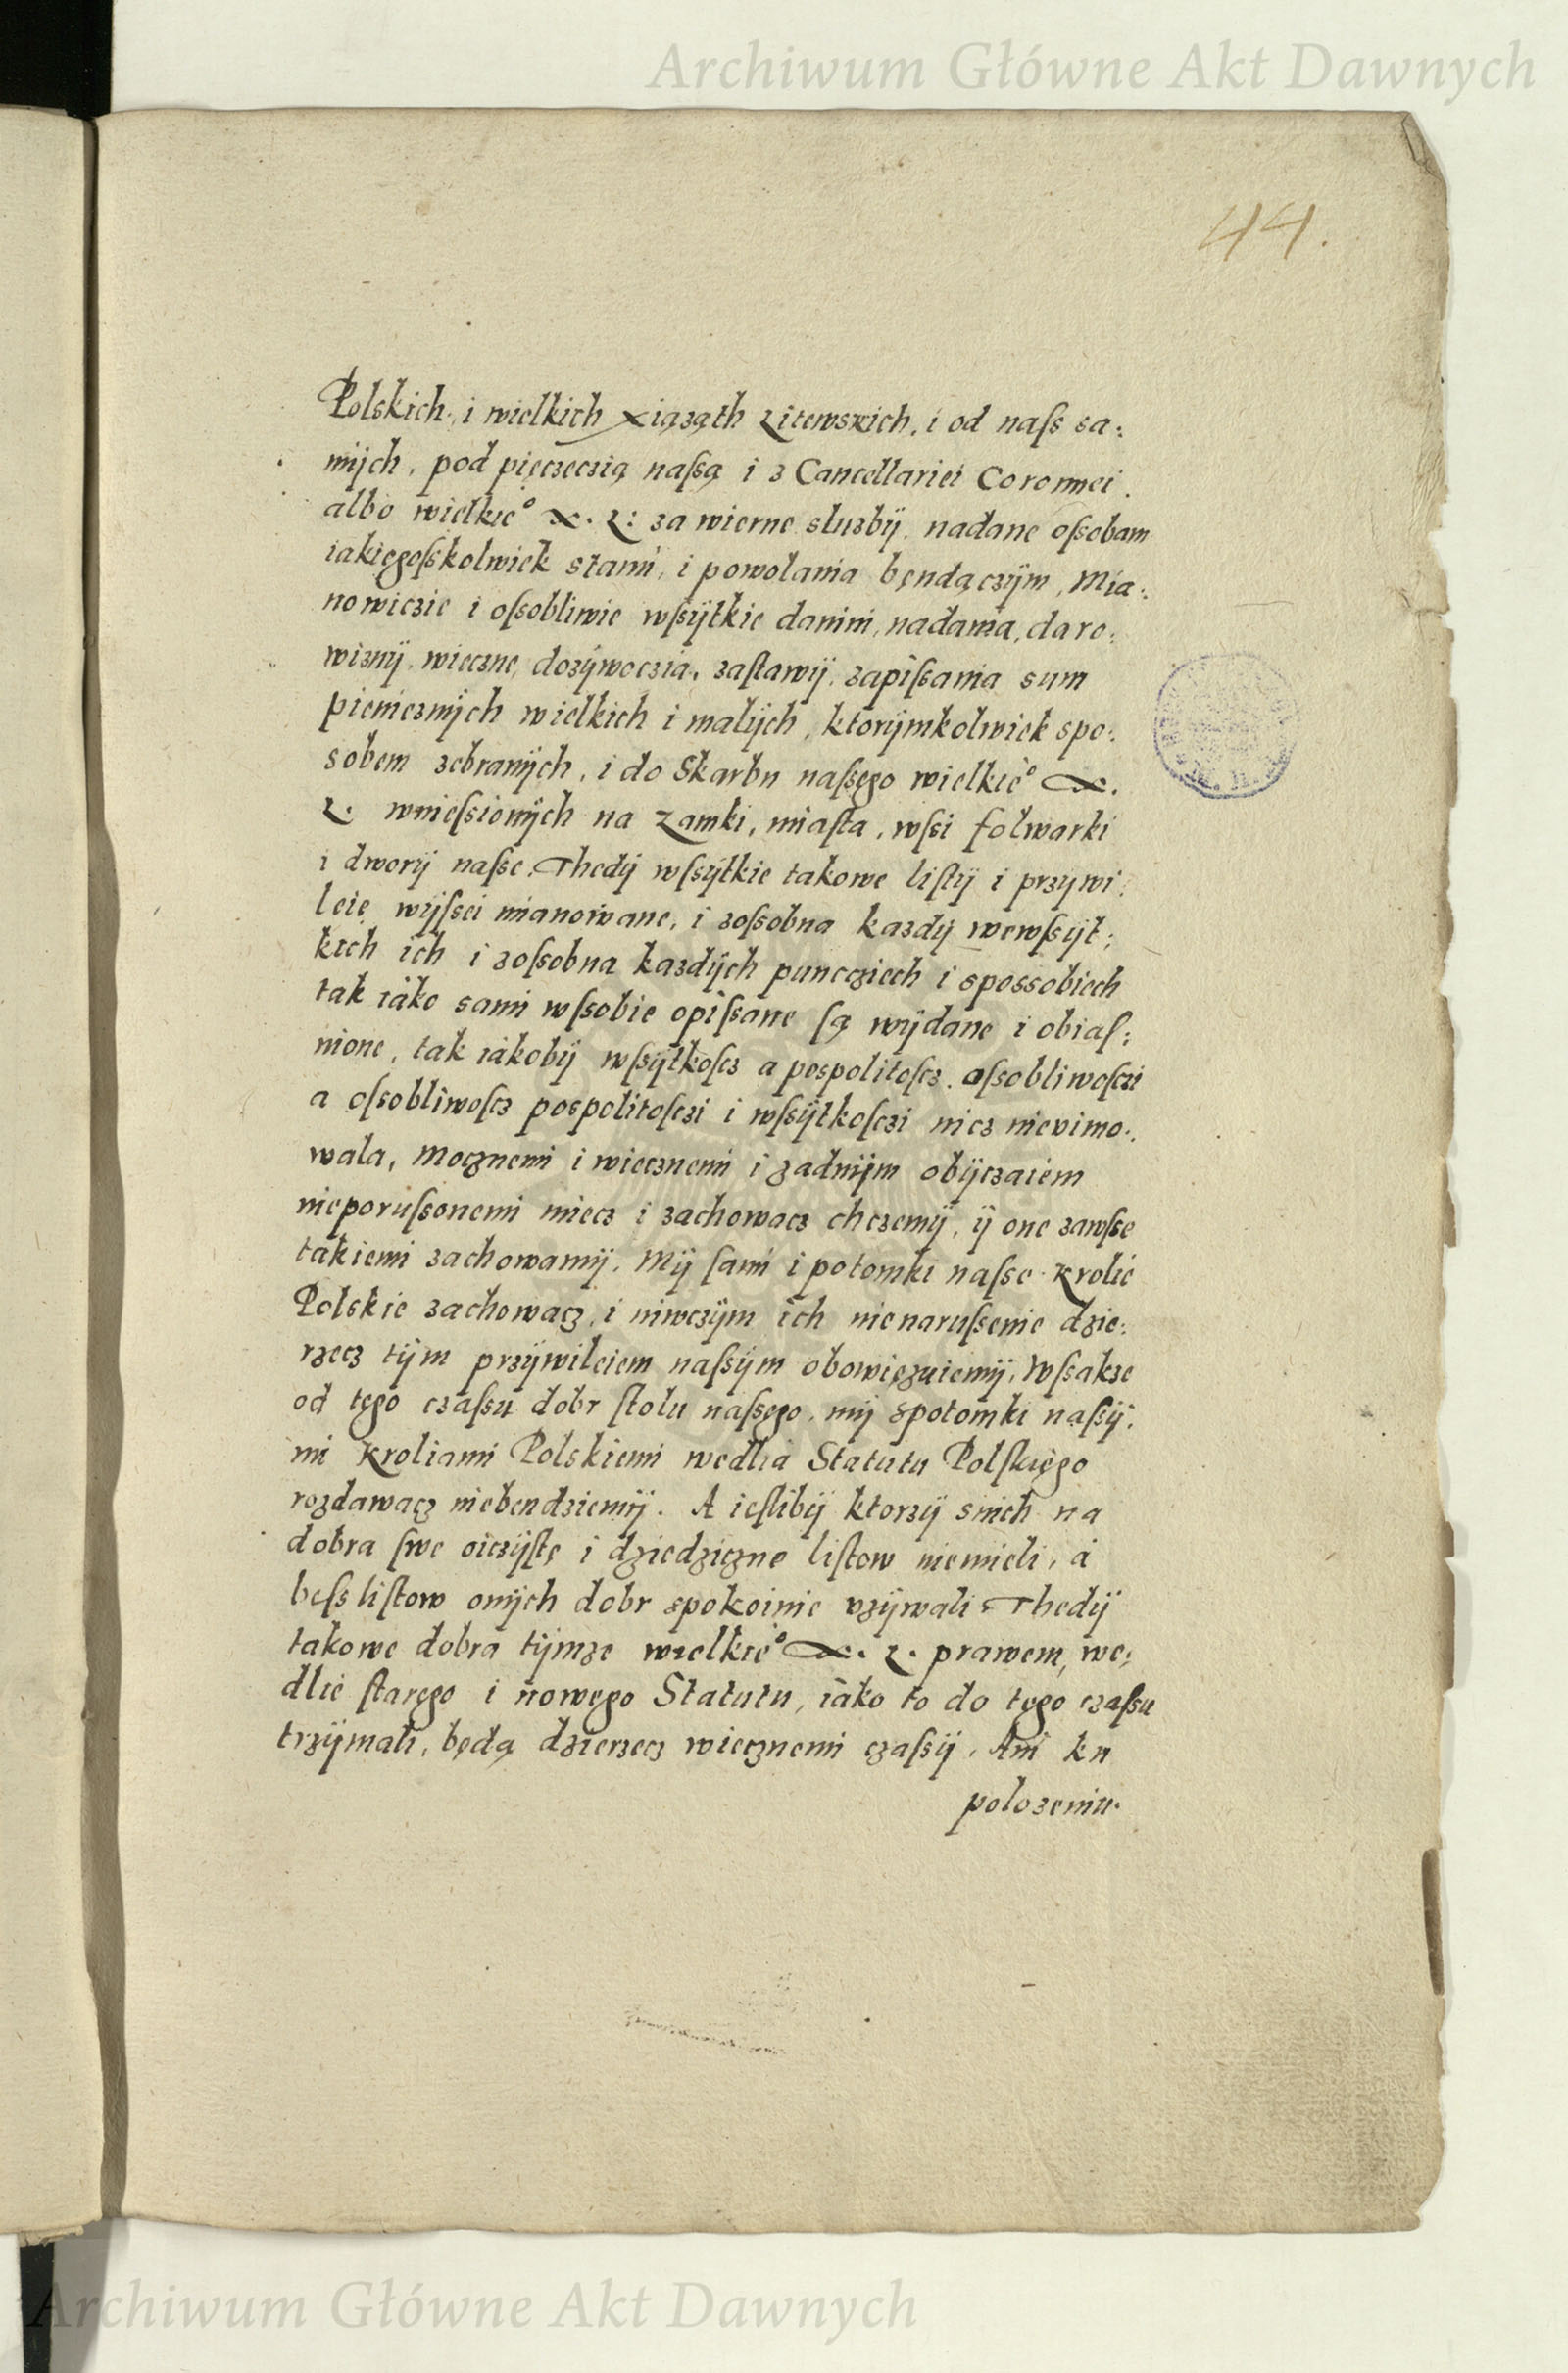 Archiwum Główne Akt Dawnych
44.
Polskich, i wielkich Xiążąth Litewskich, i od naſs sa:
mÿch, pod pięczeczią naſsą i z Cancellariei Coronnei.
albo wielkie° X. L: za wierne służbÿ, nadane oſsobam
iakięgoſskolwiek stanu, i powolania bęndączÿm, Mia:
nowiczie i oſsobliwie wſsÿtkie danini, nadania, daro:
wiznÿ, wieczne, dożÿwoczia, zaſtawÿ, zapiſsania sum
pieniężnÿch wielkich i malÿch, ktorÿmkolwiek spo:
sobem zebranÿch, i do Skarbu naſsęgo wielkie° X.
L. wnieſsionÿch na Zamki, miaſta, wſsi folwarki
i dworÿ naſse. Thedÿ wſsÿtkie takowe liſtÿ i przywi:
leię wÿſsei mianowane, i zoſsobna każdÿ wewſsÿt:
kich ich i zoſsobna każdÿch puncziech i spossobiech
tak iáko sami wſsobie opiſsane ſą wÿdane i obiaſ:
nione, tak iákobÿ wſsÿtkoſcz a pospolitoſcz, oſsobliwoſczi
a oſsobliwoſcz pospolitoſczi i wſsÿtkoſczi nicz nievimo:
wala, Mocznemi i wiecznemi i żadnÿm obÿczaiem
nieporuſsonemi miecz i zachowacz chczemÿ, ÿ one zawſse
takiemi zachowamÿ. Mÿ ſami i potomki naſse Krolie
Polskie zachowacz, i niwczÿm ich nienaruſsenie dzie:
rzecz tÿm przÿwileiem naſsÿm obowięzuiemÿ. Wſsakże
od tęgo czaſsu dobr ſtolu naſsęgo, mÿ zpotomki naſsÿ:
mi Kroliami Polskiemi wedlia Statutu Polſkięgo
rozdawacz niebendziemÿ. A ieſlibÿ ktorzÿ snich na
dobra ſwe oiczÿſtę i dziedziczne liſtow niemieli, á
beſs liſtow onÿch dobr spokoinie vzÿwali Thedÿ
takowe dobra tÿmże wielkie° X. L. prawem, we:
dlie ſtaręgo i nowęgo Statutu, iáko to do tęgo czaſsu
trzÿmali, będą dzierzecz wiecznemi czaſsÿ. Ani ku
położeniu.
Archiwum Główne Akt Dawnych